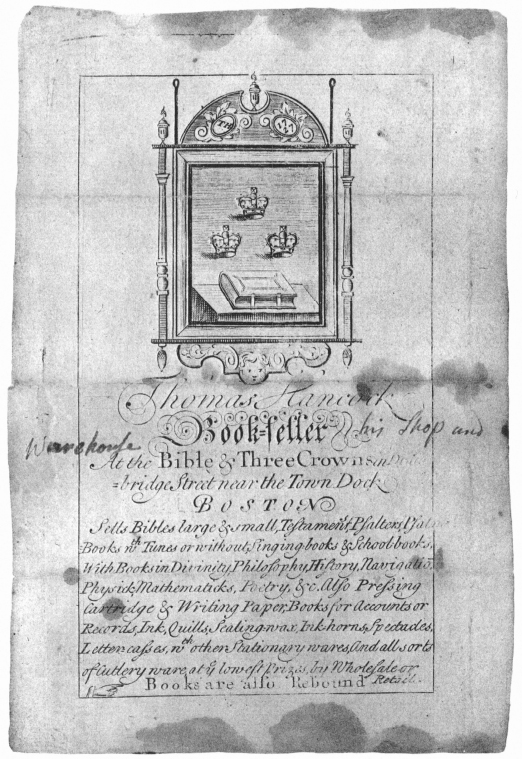 TH
Thomas Hancock
Book=seller his Shop and
Warehouse
At the Bible & Three Crowns in
=bridge Street near the Town Dock
BOSTON
Sells Bibles large & small, Testaments, Psalters,
Books wth Tunes or without, Singing books & School books,
With Books in Divinity, Philosophy, History, Navigatio
Physick, Mathematicks, Poetry, &c. Also Pressing
Cartridge & Writing Paper, Books for Accounts or
Records, Ink, Quills, Sealing wax, Inkhorns, Spectacles,
Letter-casses, wth other Stationary wares, And all sorts
of Cutlery ware, at ye lowest Prizes, by Wholesale or
Books are also Rebound Retail.